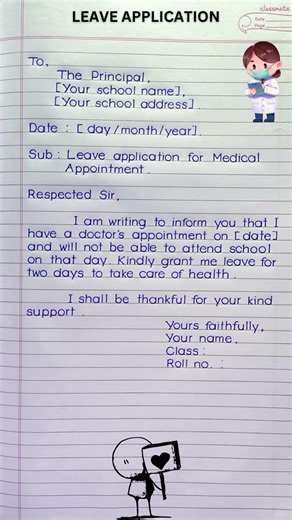 LEAVE APPLICATION
classmate
Date
Page
To,
The Principal,
[Your school name],
[Your school address].
Date : [ day/month/year].
Sub : Leave application for Medical
Appointment.
Respected Sir,
I am writing to inform you that I
have a doctor's appointment on [date]
and will not be able to attend school
on that day. Kindly grant me leave for
two days to take care of health.
I shall be thankful for your kind
support.
Yours faithfully,
Your name,
Class :
Roll no. :